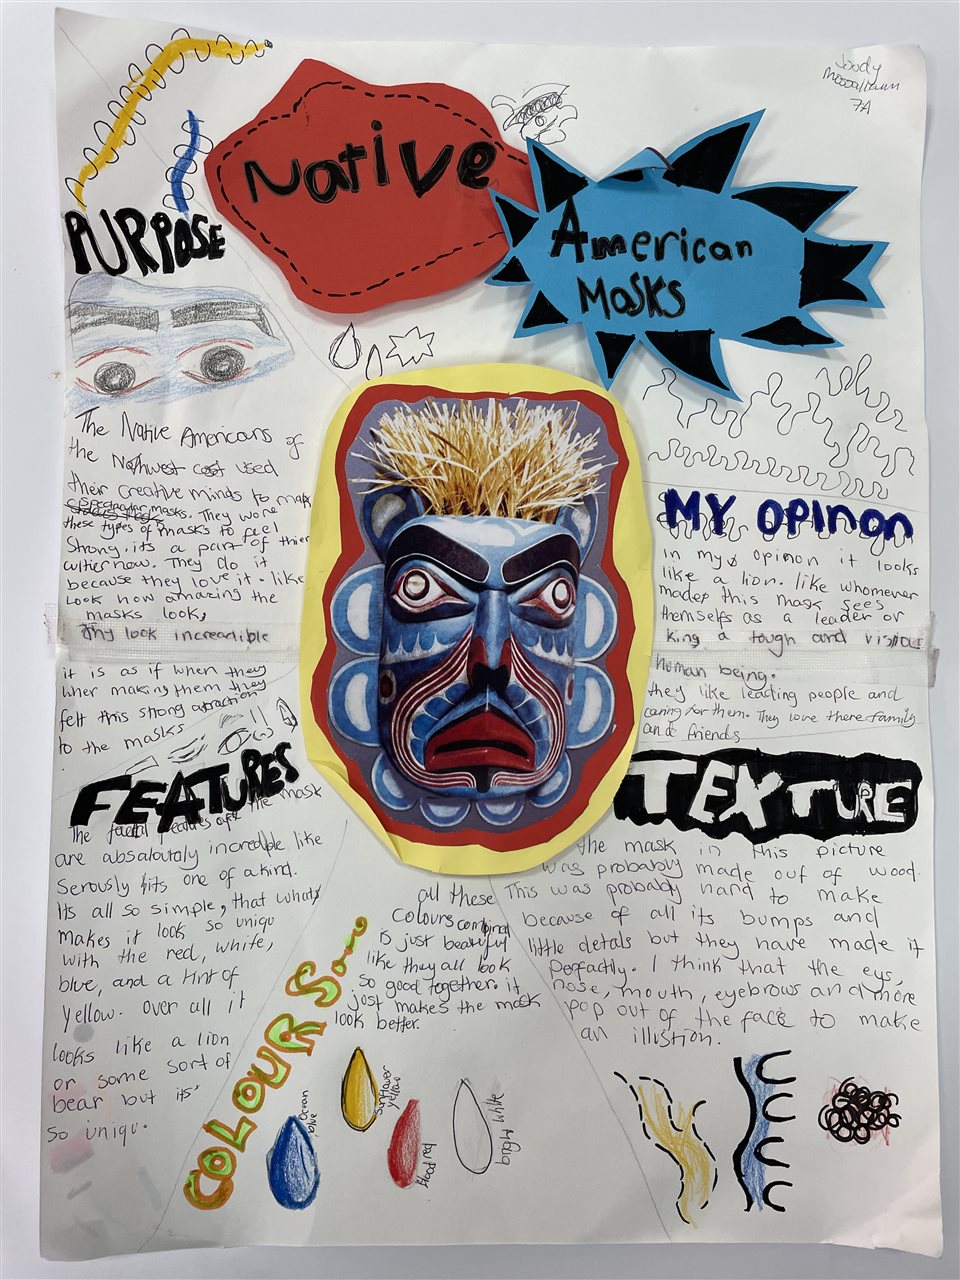 Joody
7A
Native
American
Masks
PURPOSE
The Native Americans of
the Nothwest cost used
their creative minds to make
spectacular masks. They wore
these types of masks to feel
strong. its a part of thier
culternow. They do it
because they love it. like
look how amazing the
masks look,
thy look increadible
it is as if when they
wher making them they
felt this strong attraction
to the masks
MY OPINON
in my opinon it looks
like a lion. like whomever
mades this mask sees
themselfs as a leader or
king a tough and
human being.
they like leading people and
caring for them. They love there family
and friends
FEATURES
The facial features of the mask
are absaloutaly incredible like
Serously hits one of a kind.
Its all so simple, that whats
makes it look so uniqu
with the red, white,
blue, and a hint of
yellow. over all it
looks like a lion
or some sort of
bear but its
so uniqu.
COLOURS
all these
colours combined
is just beautiful
like they all look
so good together. it
just makes the mask
look better.
Ocean
blue
sunflower
yellow
Blood red
bright white
TEXTURE
the mask in this picture
was probably made out of wood.
This was probably hard to make
because of all its bumps and
little detals but they have made it
perfactly. I think that the eys,
nose, mouth, eyebrows and more
pop out of the face to make
an illustion.